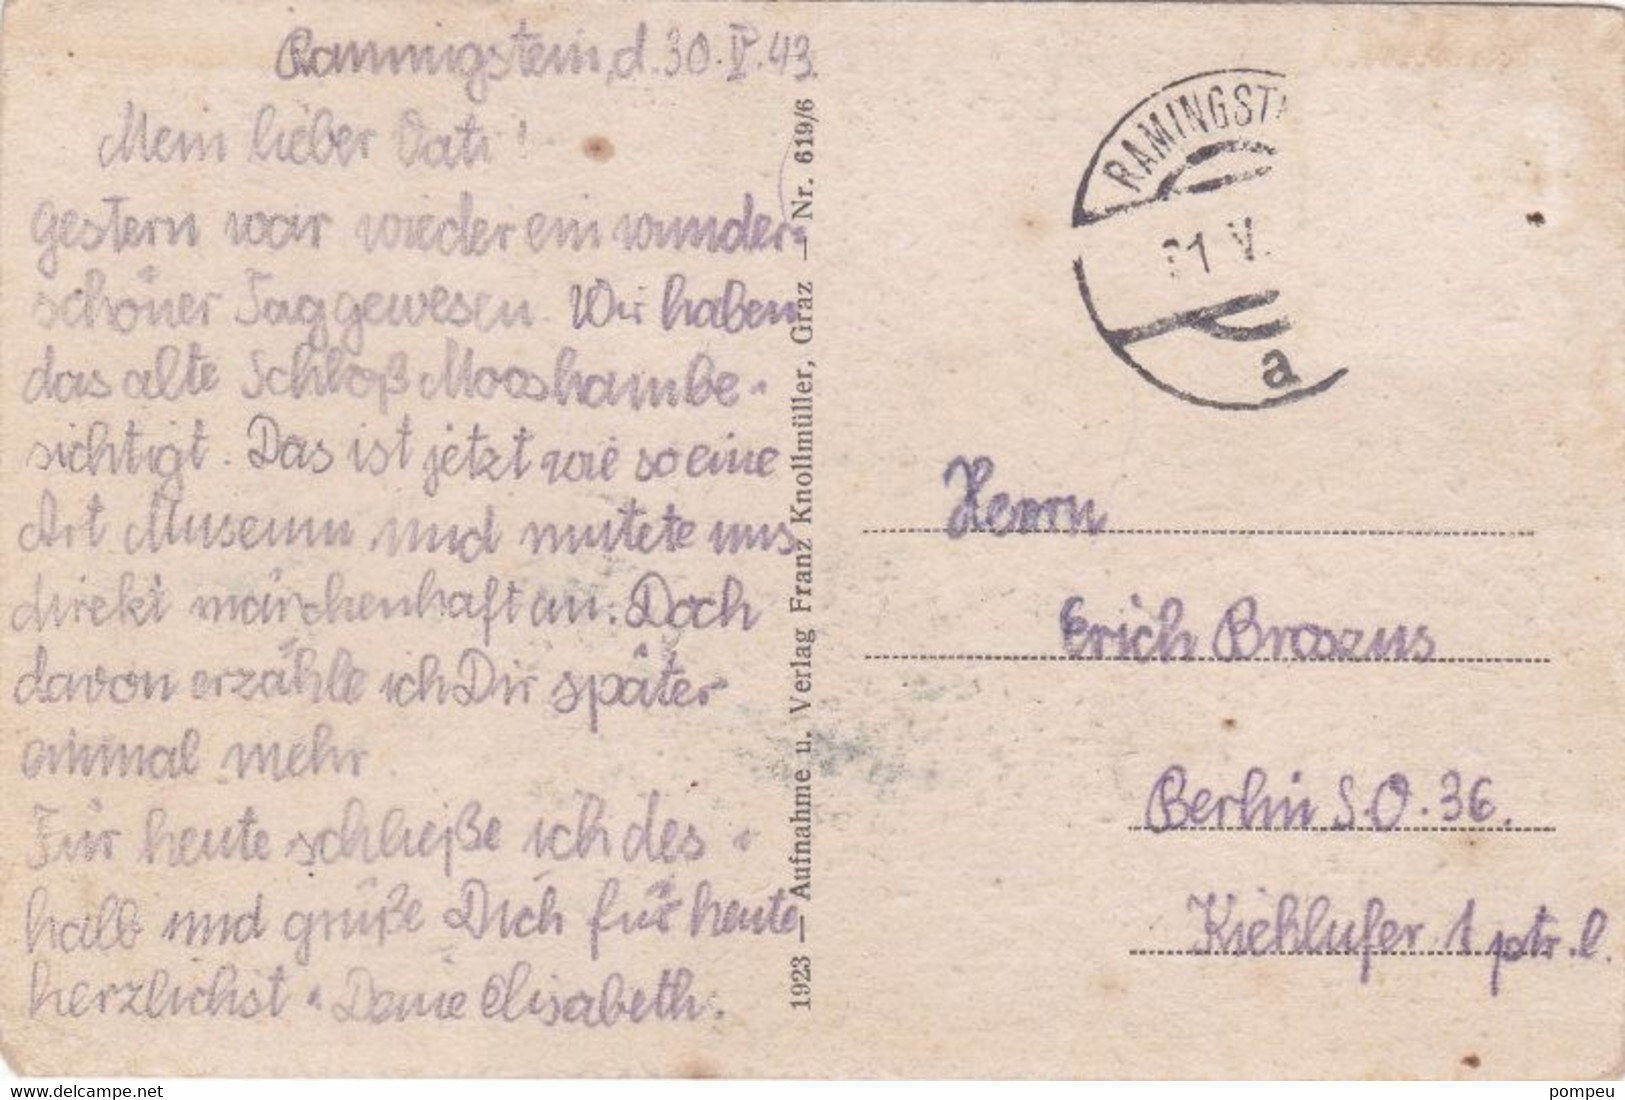 Ramingstein, d. 30. V. 43.
Mein lieber Vati!
Gestern war wieder ein wunder-
schöner Tag gewesen. Wir haben
das alte Schloß Mooshambe-
sichtigt. Das ist jetzt wie so eine
Art Museum und mutete uns
direkt märchenhaft an. Doch
davon erzähle ich Dir später
einmal mehr.
Für heute schließe ich des-
halb und grüße Dich für heute
herzlichst - Deine Elisabeth.
1923 — Aufnahme u. Verlag Franz Knollmüller, Graz — Nr. 619/6
RAMINGST
1 V.
a
Herrn
Erich Broszus
Berlin S.O. 36.
Kiehlufer 1 ptr. l.
delcampe.net
pompeu